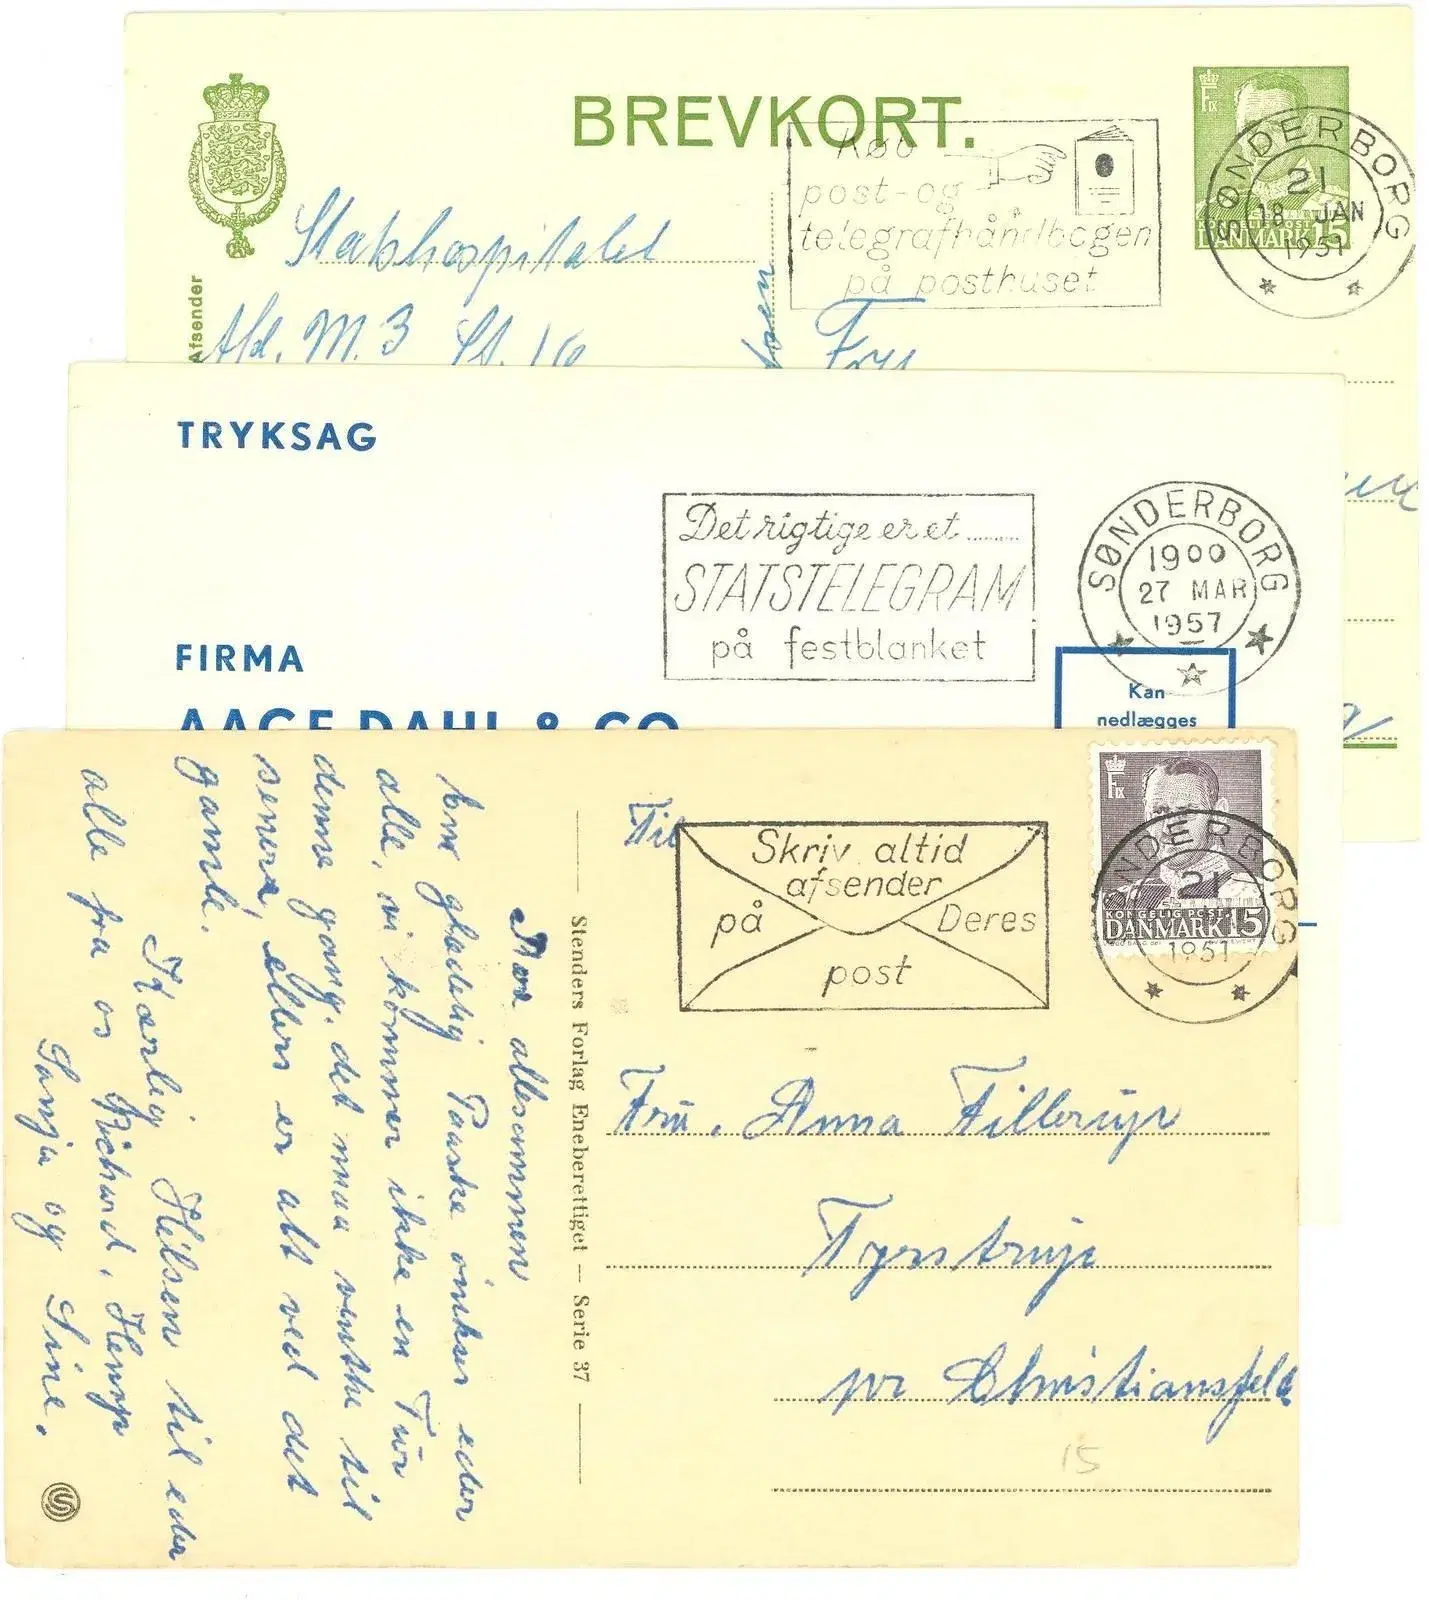 BREVKORT.
Køb
post-og
telegrafhåndbogen
på posthuset
F IX
KONGELIG POST
DANMARK 15
SØNDERBORG
21
18 JAN
1951
Afsender
Statshospitalet
Afd. M. 3 St. 16
Fru
TRYKSAG
Det rigtige er et..........
STATSTELEGRAM
på festblanket
SØNDERBORG
19 00
27 MAR
1957
FIRMA
AAGE DAHL & CO
Kan
nedlægges
Kære allesammen
En glædelig Paaske ønskes eder
alle, vi kommer ikke en Tur
denne gang. det maa vente til
senere, ellers er alt ved det
gamle.
Kærlig Hilsen til eder
alle fra os Richard, Henry
Sonja og Sine.
Stenders Forlag Eneberettiget — Serie 37
Til
Skriv altid
afsender
på Deres
post
F IX
KONGELIG POST
DANMARK 15
NDERBORG
21
1951
Fru. Anna Fillerup
Tyrstrup
pr Christiansfeld
15